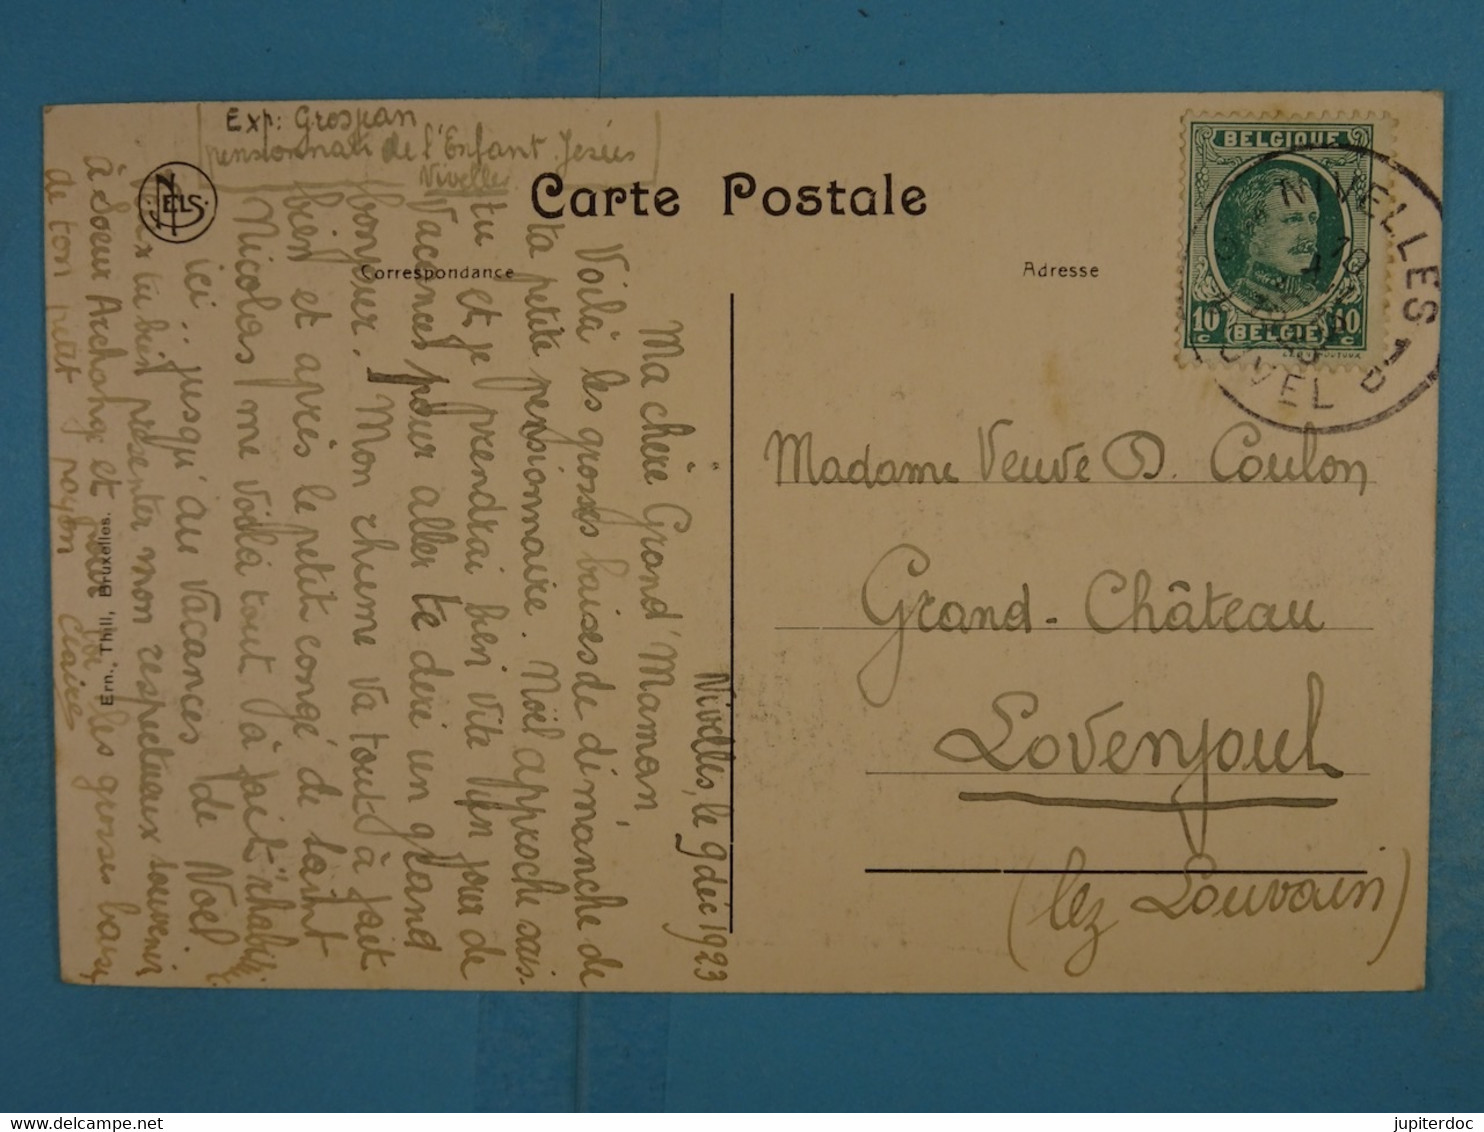 Exp: Grospan
pensionnat de l'Enfant Jésus
Nivelles
Carte Postale
Correspondance
Adresse
BELGIQUE
10 c
10 c
BELGIE
NIVELLES
NELS
Ern. Thill, Bruxelles.
Nivelles, le 9 déc 1923
Ma chère Grand'Maman,
Voilà les grosses baises de dimanche de
ta petite pensionnaire. Noël approche sais-
tu et je prendrai bien vite le jour de
Vacances pour aller te dire un grand
bonjour. Mon rhume va tout à fait
bien et après le petit congé de Saint
Nicolas me voilà tout à fait "rhabi
ici .. jusqu'au vacances de Noël
tu bien présenter mon respectueux souvenir
à Soeur Archange et pour toi les grosses baises
de ton petit rayon
Claire
Madame Veuve D. Coulon
Grand-Château
Lovenjoul
(lez Louvain)
jupiterdoc